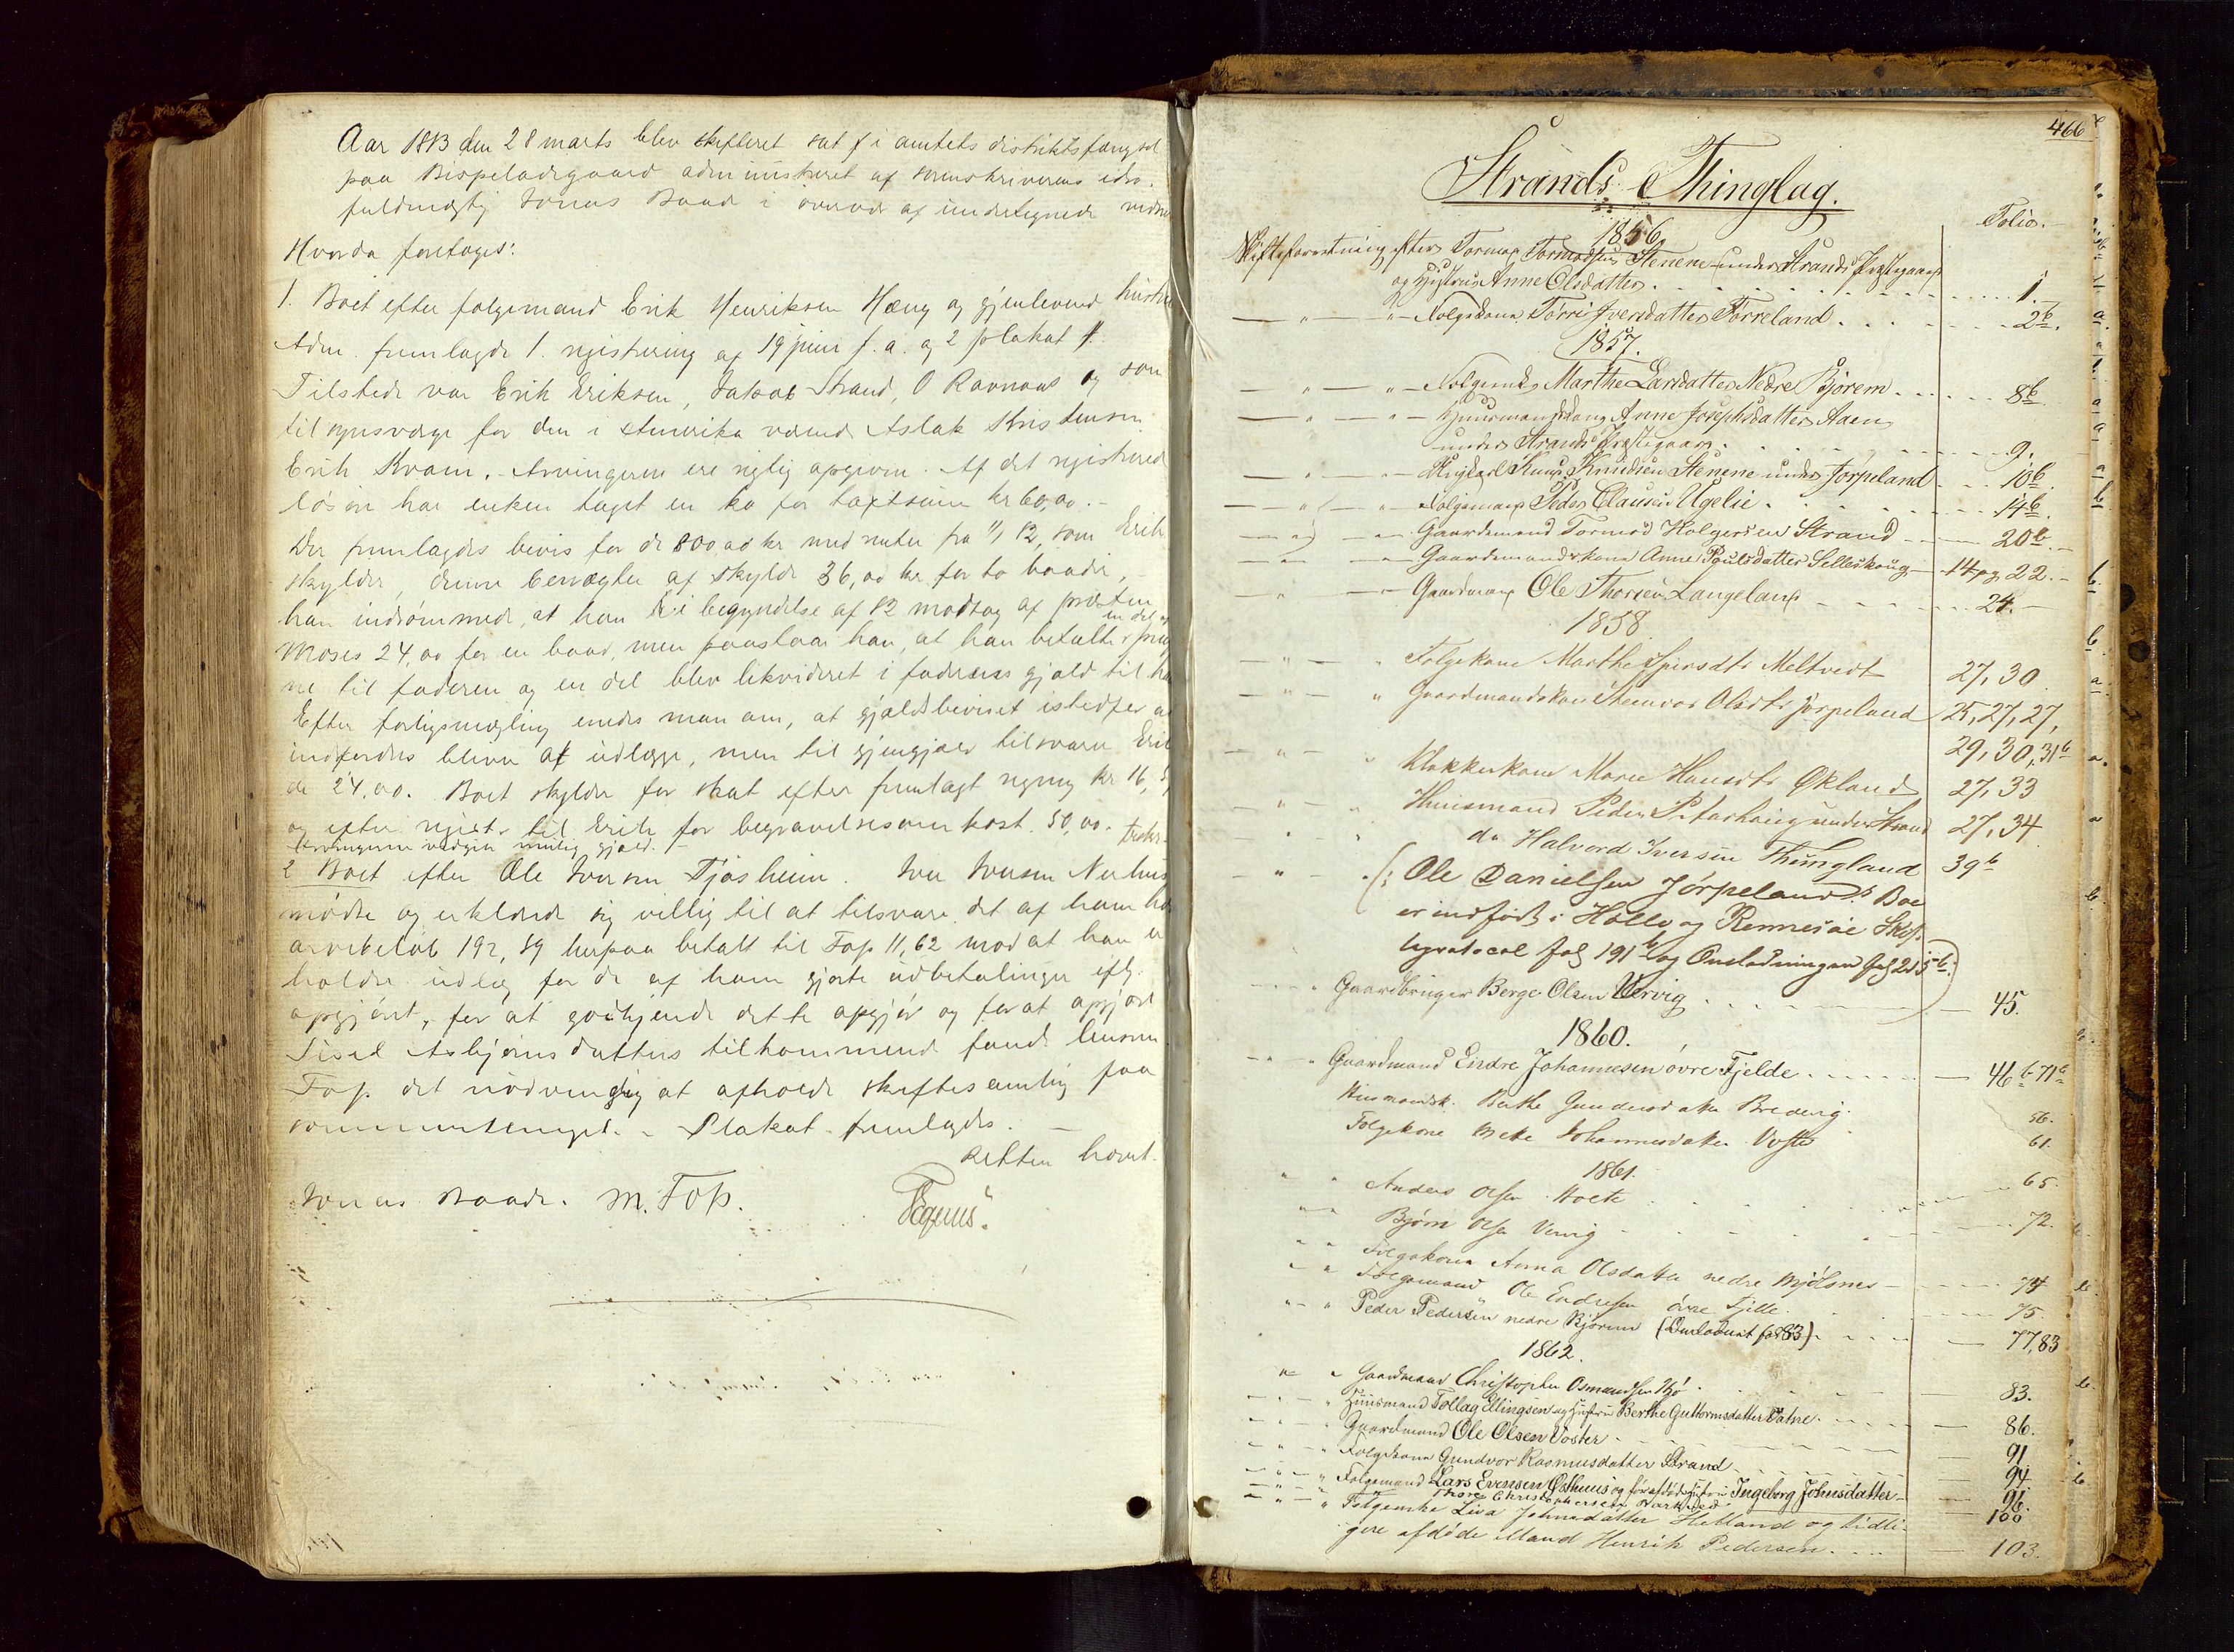 Aar 1883 den 28 marts blev skifteret sat i amtets distriktsfængsel
paa Bispeladegaard administreret af sorenskriverens edsv.
fuldmægtig Jonas Baade i overvær af undertegnede vidner
Hvorda foretoges:
1. Boet efter folgemand Erik Henriksen Hæng og gjenlevend hustru
Adm. fremlagde 1. registrering af 19 juni f. a. og 2 plakat
Tilstede var Erik Eriksen, Jakob Strand, O Ravnaas og som
til synsværge for den i Amerika værend Aslak Kristensen
Erik Kvam. Arvingerne ere rigtig opgivne. Af det registrered
løsøre har enken taget en ko for taxtsum kr 60,00.
Der fremlagdes bevis for de 800 00 kr med renter fra 11/12, som Erik
skylder, denne benegter at skylde 36,00 kr for to baade,
han indrømmede, at han i begyndelse af 82 modtog af
Moses 24,00 for en baad, men paastaar han, at han betalte
ne til faderen og en del blev likvideret i faderens gjæld til
Efter forligsmægling enedes man om, at gjældsbeviset istedfor
indfordres bliver at udlægge, men til gjengjæld tilsvarer Erik
de 24,00. Boet skylder for skat efter fremlagt regning kr 16,
og efter regist. til Erik for begravelsesomkost. 50,00.
Arvingerne vedgik mulig gjæld.
2 Boet efter Ole Iversen Tjøsheim. Iver Iversen
mødte og erklærede sig villig til at tilsvare det af ham
arvebeløb 192,89 herpaa betalt til Foss 11,62 mod at han
holder udlæg for de af ham gjorte udbetalinger eftr.
opgjøret, for at godkjende dette opgjør og for at opgjøre
Sisel Asbjørnsdatters tilkommende fandt lensm
Foss det nødvendig at afholde skiftesamling paa
sommertinget. Plakat fremlagdes.
Retten hævet.
Jonas Baade. M. Foss.
466
Strands Thinglag.
Folio.
1856
Skifteforretning efter Tormod Tormodsen Stenene under Strands Præstegaard
og Hustru Anne Olsdatter 1.
— " — " Folgekone Torri Iversdatter Tørreland 2b.
1857.
— " — " Folgeenke Marthe Larsdatter Nedre Bjørem 8b
— " — " Huusmandskone Anne Josephsdatter Aaen
under Strands Præstegaard 9.
— " — " Pigkarl Knud Knudsen Stenene under Jørpeland 10b.
— " — " Folgemand Peder Clausen Ugelie 14b.
— " — " Gaardemand Tormod Holgersen Strand 20b.
— " — " Gaardemandskone Anne Poulsdatter Selleskoug 14 og 22.
— " — " Gaardmand Ole Thorsen Langeland 24.
1858
— " — " Folgekone Marthe Iversdtr Meltvedt 27, 30
— " — " Gaardmandskone Steenvor Olsdtr Jørpeland 25, 27, 27,
29, 30, 31b
— " — " Klokkerkone Maren Hansdtr Økland 27, 33
— " — " Huusmand Peder Pitarhaug under Strand 27, 34
" " do Halvord Iversen Thungland 39b
— " — (: Ole Danielsen Jørpelands Boe
er indført i Holle og Rennesøe Skif-
teprotocol fol 191b og Omladningen fol 215b:)
" Gaardbruger Berge Olsen Vervig 45.
1860.
" Gaardmand Endre Johannesen øvre Fjelde 46b 71b
Husmandsk. Berthe Gundersdatter Brevig 56.
Folgekone Mette Johannesdatter Voster 61.
1861.
" " Anders Olsen Holte 65.
" " Bjørn Olsen Vervig 72.
" " Folgekone Anna Olsdatter nedre Mjølsnes 74
" " Folgemand Ole Endresen øvre Fjelde 75.
" " " Peder Pedersen nedre Bjørem (Omladent fol 83) 77, 83
1862.
" " Gaardmand Christopher Osmundsen Hø 83.
" Huusmand Tollag Ellingsen og Hustru Berthe Guttormsdatter Tatne 86.
" Gaardmand Ole Olsen Voster 91
" Folgekone Gundvor Rasmusdatter Strand 94
" Folgemand Lars Evensen Østhuus og forafdøde Hustru Ingeborg Johnsdatter 96.
" Thore Christophersen Barkved 100
" Folgeenke Siva Johnsdatter Hetland og tidli-
gere afdøde Mand Henrik Pedersen 103.